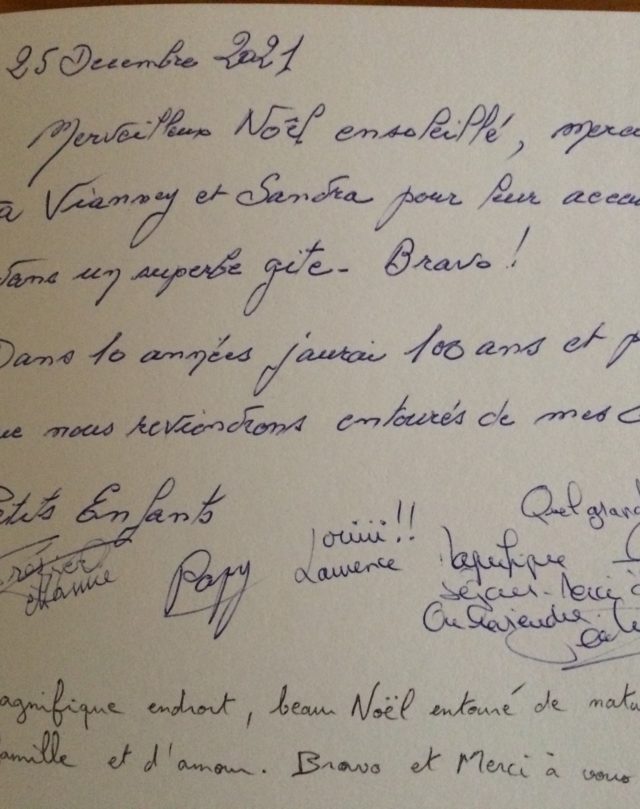 25 Decembre 2021
Merveilleux Noël ensoleillé, merc
à Vianney et Sandra pour leur accu
dans un superbe gite- Bravo !
Dans 10 années j'aurai 100 ans et p
ue nous reviendrons entourés de mes
etits Enfants
Quel grand
ouiiii!!
Papy Laurence
séjour. Merci
On
agnifique endroit, beau Noël entouré de natu
famille et d'amour. Bravo et Merci à vous